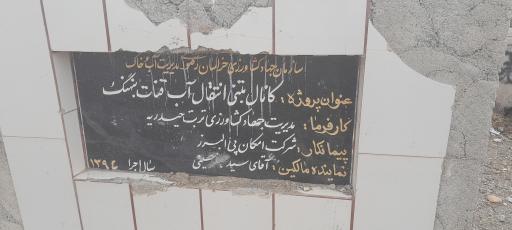 سازمان جهاد کشاورزی خراسان رضوی مدیریت آب و خاک
عنوان پروژه : کانال بتنی انتقال آب قنات بسهنگ
کارفرما : مدیریت جهاد کشاورزی تربت حیدریه
پیمانکار : شرکت امکان پی البرز
نماینده مالکین : آقای سید حقیقی سال اجرا ۱۳۹۴